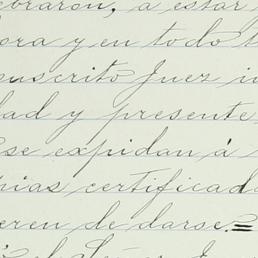 ebraron, a estar
ora y en todo t
uscrito Juez in
dad y presente
se expidan á
pias certificada
eren de darse.=
el Señor Juez